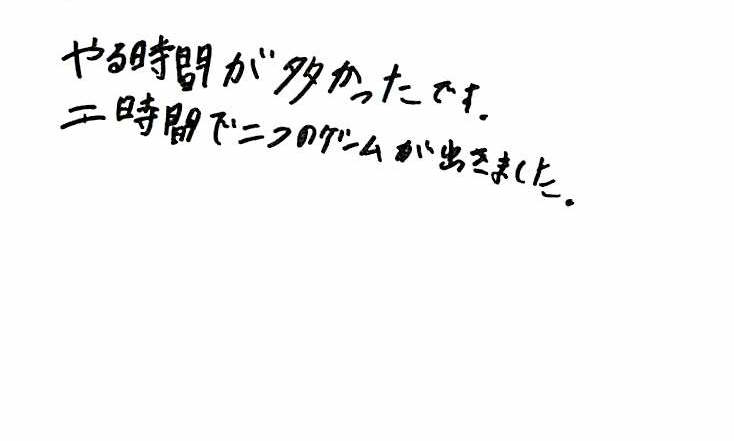 やる時間が多かったです.
二時間で二つのゲームが出きました.